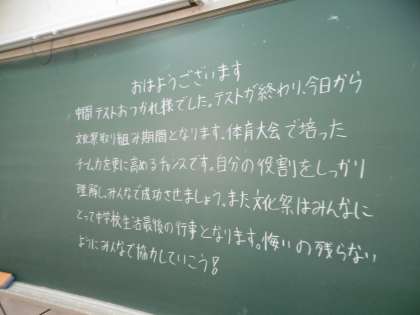 おはようございます
中間テストおつかれ様でした。テストが終わり、今日から
文化祭取り組み期間となります。体育大会で培った
チーム力を更に高めるチャンスです。自分の役割をしっかり
理解し、みんなで成功させましょう。また文化祭はみんなに
とって中学校生活最後の行事となります。悔いの残らない
ようにみんなで協力していこう!